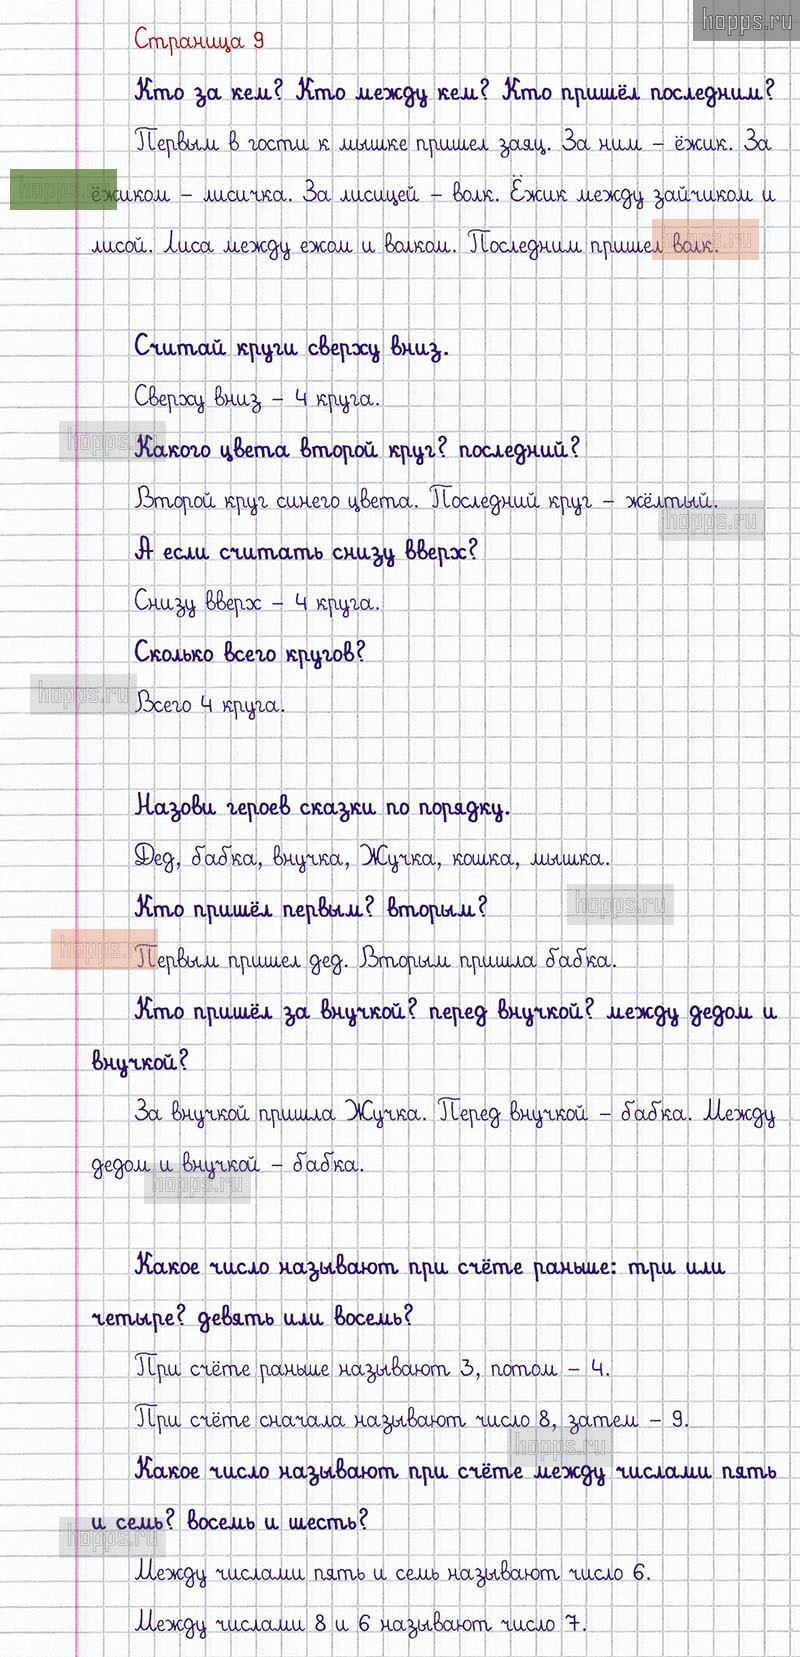 hopps.ru
Страница 9
Кто за кем? Кто между кем? Кто пришёл последним?
Первым в гости к мышке пришел заяц. За ним – ёжик. За
hopps.ru
ёжиком – лисичка. За лисицей – волк. Ёжик между зайчиком и
лисой. Лиса между ежом и волком. Последним пришел волк.
hopps.ru
Считай круги сверху вниз.
Сверху вниз – 4 круга.
hopps.ru
Какого цвета второй круг? последний?
Второй круг синего цвета. Последний круг – жёлтый.
hopps.ru
А если считать снизу вверх?
Снизу вверх – 4 круга.
Сколько всего кругов?
hopps.ru
Всего 4 круга.
Назови героев сказки по порядку.
Дед, бабка, внучка, Жучка, кошка, мышка.
Кто пришёл первым? вторым?
hopps.ru
hopps.ru
Первым пришел дед. Вторым пришла бабка.
Кто пришёл за внучкой? перед внучкой? между дедом и
внучкой?
За внучкой пришла Жучка. Перед внучкой – бабка. Между
дедом и внучкой – бабка.
hopps.ru
Какое число называют при счёте раньше: три или
четыре? девять или восемь?
При счёте раньше называют 3, потом – 4.
При счёте сначала называют число 8, затем – 9.
hopps.ru
Какое число называют при счёте между числами пять
и семь? восемь и шесть?
hopps.ru
Между числами пять и семь называют число 6.
Между числами 8 и 6 называют число 7.